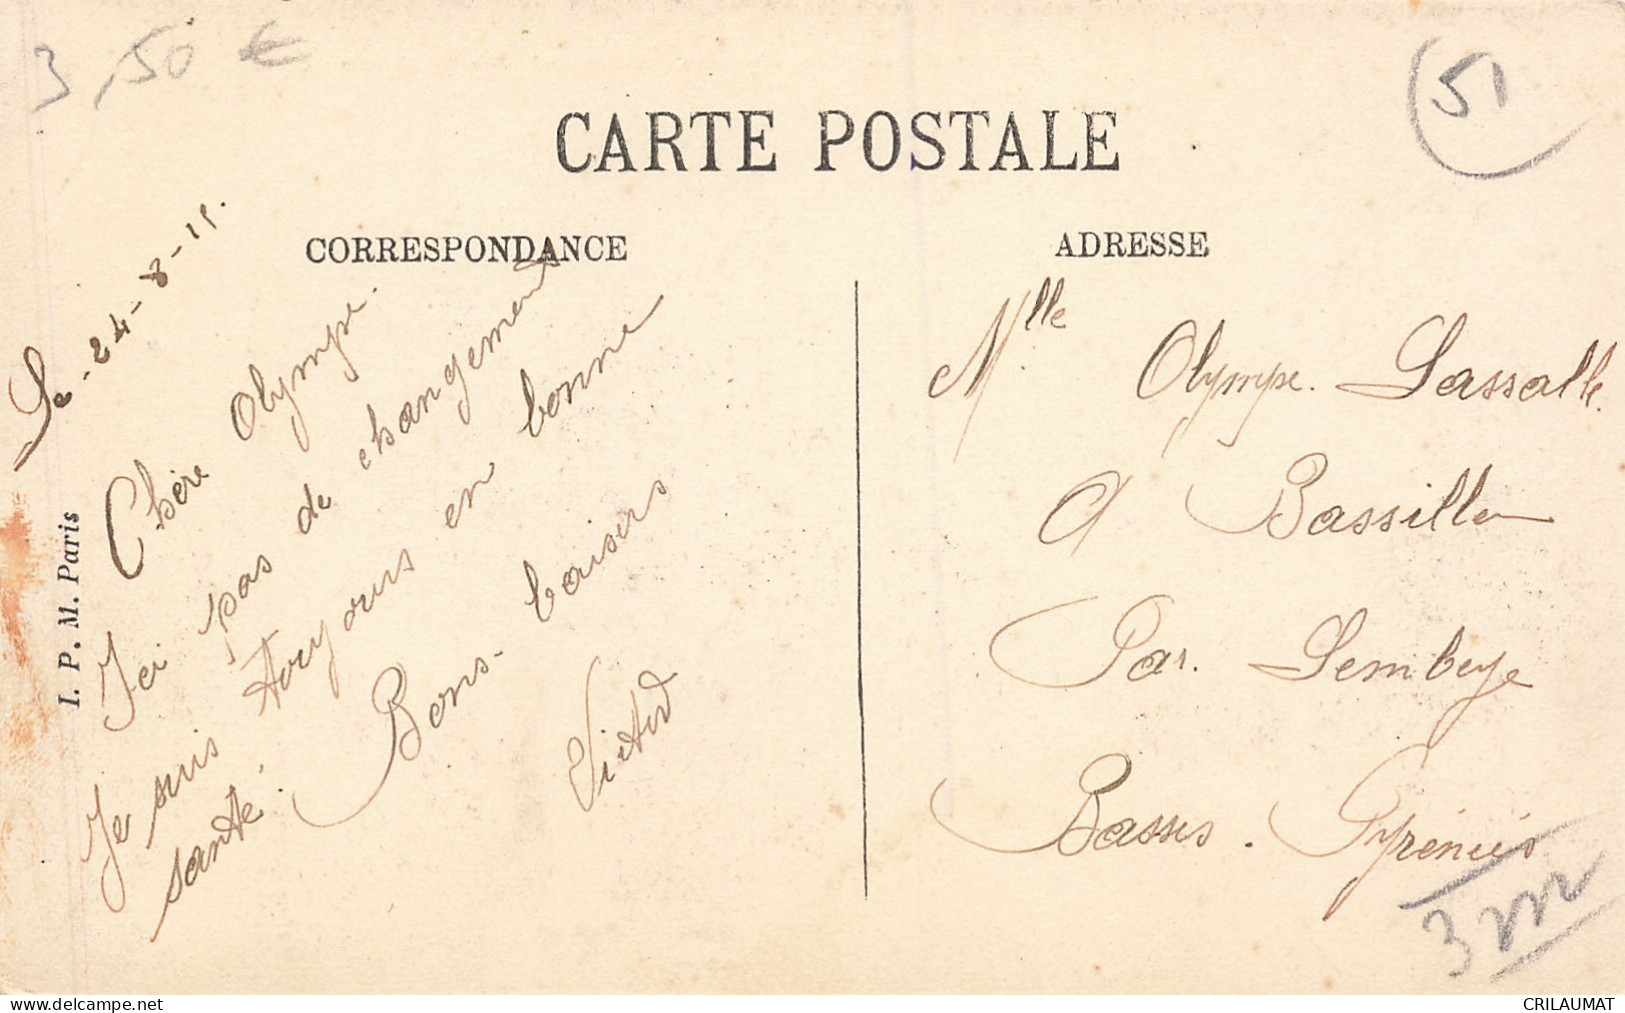 3,50 €
51
CARTE POSTALE
CORRESPONDANCE
ADRESSE
Le - 24 - 8 - 15.
Chère Olympe.
Ici pas de changement
Je suis toujours en bonne
santé.
Bons baisers
Victor
Mlle Olympe Lassalle.
A Bassillon
Par. Lembeye
Basses. Pyrénées
I. P. M. Paris
www.delcampe.net
CRILAUMAT